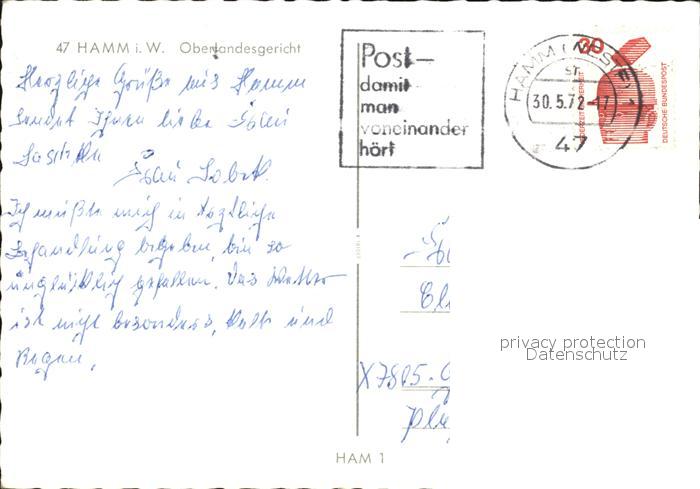 47 HAMM i. W. Oberlandesgericht
Herzliche Grüße aus Hamm
sendet Ihnen liebe Frau
Frau
Ich mußte mich in ärztliche
Behandlung begeben, bin so
unglücklich gefallen. Das Wetter
ist nicht besonders, Kalt und
Regen.
Post-
damit
man
voneinander
hört
HAMM (WESTF) 1
30.5.72-17
47
30
JEDERZEIT SICHERHEIT
DEUTSCHE BUNDESPOST
X7805.
privacy protection
Datenschutz
HAM 1